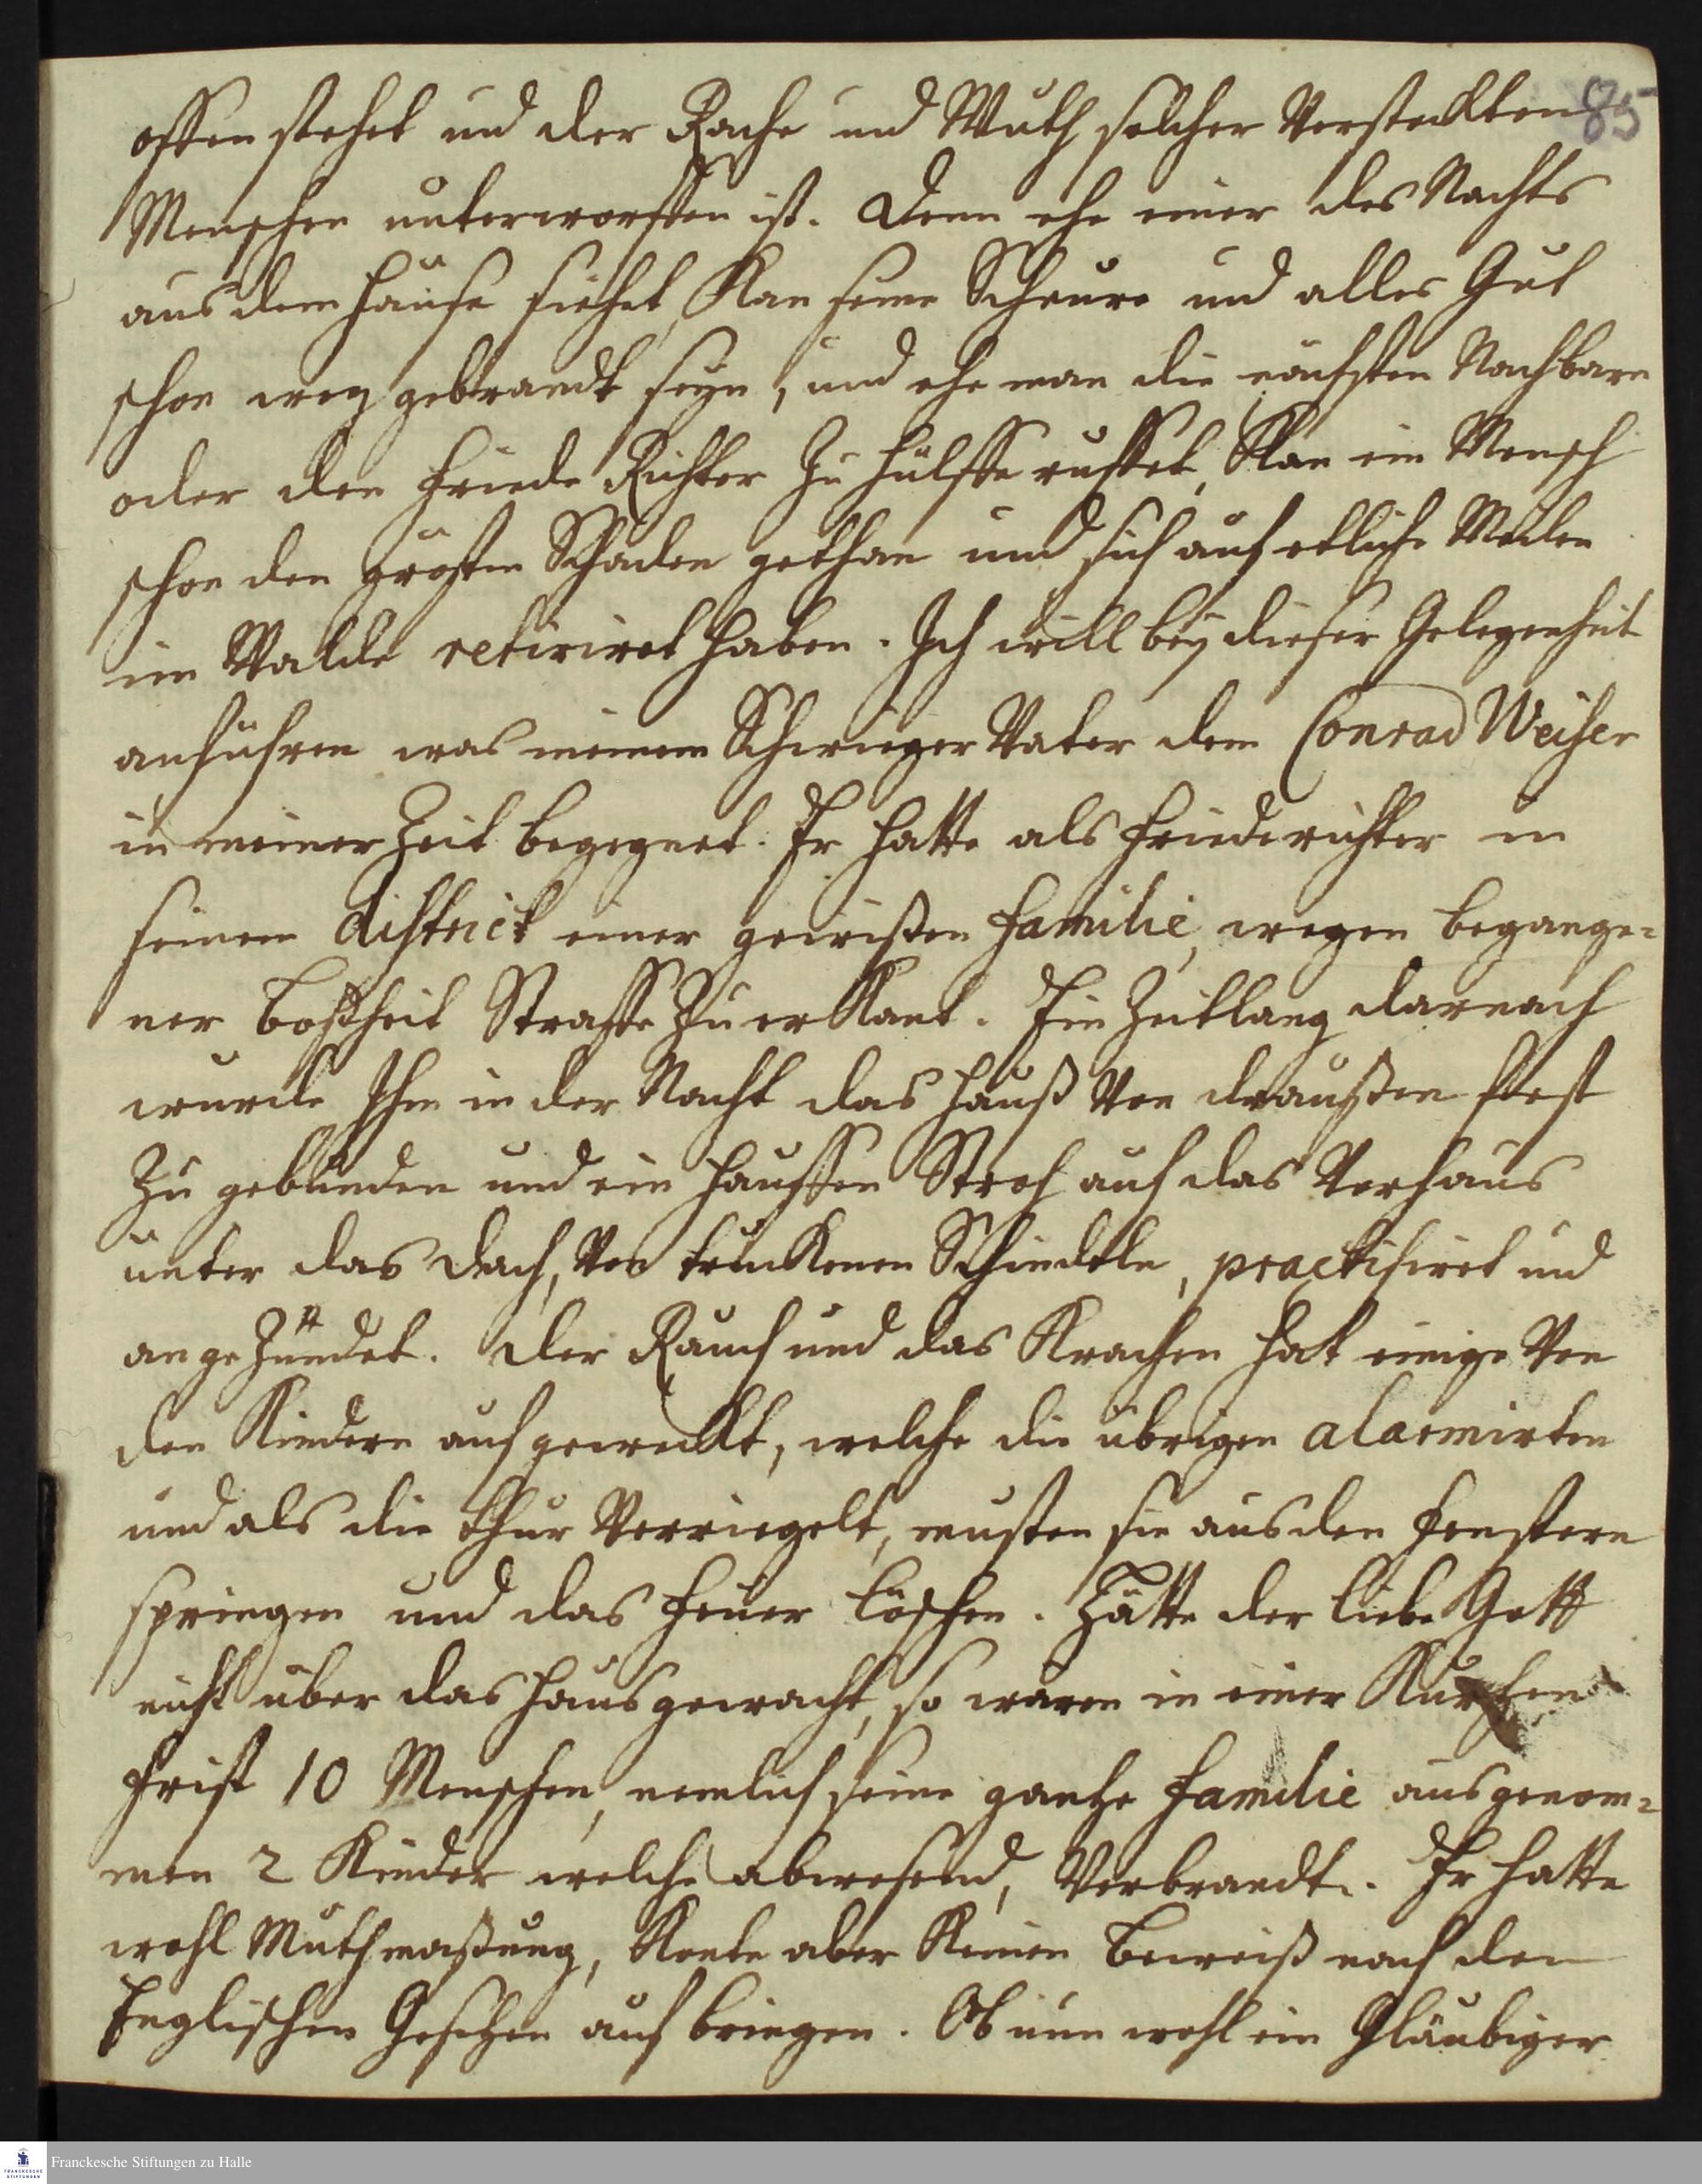 85
offen stehet und der Rache und Wuth solcher Versteckten
Menschen unterworffen ist. Denn ehe einer des Nachts
aus dem Hause siehet, Kan seine Scheure und alles Gut
schon weg gebrandt seyn, und ehe man die nächsten Nachbarn
oder den Friede Richter zu Hülffe ruffet, Kan ein Mensch
schon den grösten Schaden gethan und sich auf etliche Meilen
im Walde retiriret haben. Ich will bey dieser Gelegenheit
anführen was meinem Schwieger Vater dem Conrad Weiser
in meiner Zeit begegnet. Er hatte als Friederichter in
seinem district einer gewißen Familie, wegen begange-
ner Boßheit Straffe Zu erKant. Ein Zeitlang darnach
wurde Ihm in der Nacht das Hauß Von draußen fest
Zu gebunden und ein Hauffen Stroh auf das Vorhaus
unter das Dach, Von truckenen Schindeln, practisiret und
angezündet. Der Rauch und das Krachen hat einige Von
den Kindern aufgeweckt, welche die übrigen alarmirten
und als die Thur Verriegelt, musten sie aus den Fenstern
springen und das Feuer löschen. Hätte der liebe Gott
nicht über das Haus gewacht, so wären in einer Kurtzen
Frist 10 Menschen, nemlich seine gantze Familie ausgenom-
men 2 Kinder welche abwesend, Verbrandt. Er hatte
wohl Muthmaßung, Konte aber Keinen Beweiß nach den
Englischen Gesetzen auf bringen. Ob nun wohl ein Gläubiger
Franckesche Stiftungen zu Halle
FRANCKESCHE
STIFTUNGEN